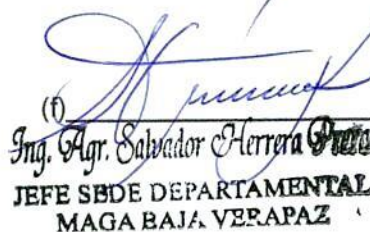 (f)
Ing. Agr. Salvador Herrera
JEFE SEDE DEPARTAMENTAL
MAGA BAJA VERAPAZ